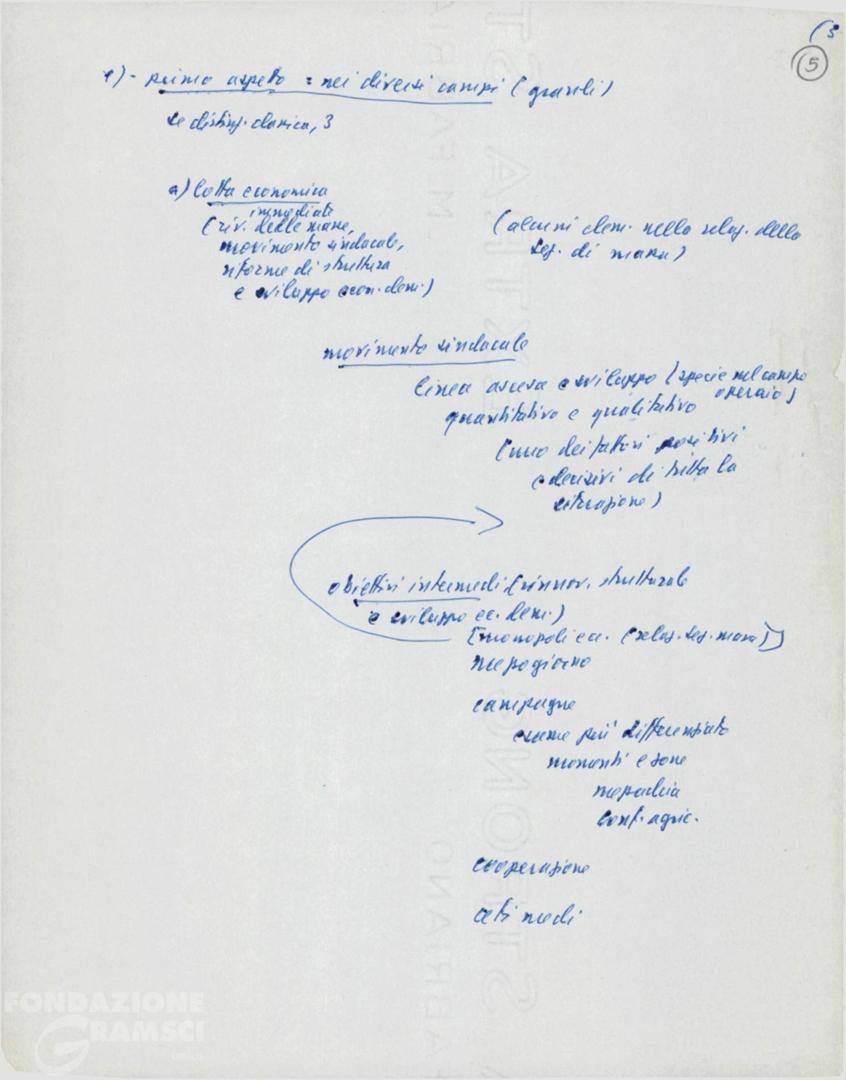 (5
5
1) - primo aspetto = nei diversi campi (grandi)
se disting. classica, 3
a) Lotta economica
immediate
(riv. delle masse,
movimento sindacale,
riforme di struttura
e sviluppo econ. dem.)
(alcuni elem. nella relaz. della
sez. di massa)
movimento sindacale
linea ascesa e sviluppo (specie nel campo
operaio)
quantitativo e qualitativo
(uno dei fattori positivi
e decisivi di tutta la
situazione)
obiettivi intermedi (rinnov. strutturale
e sviluppo ec. dem.)
[monopoli ecc. (relaz. sez. massa)]
mezzogiorno
campagne
esame più differenziato
momenti e zone
mezzadria
conf. agric.
cooperazione
ceti medi
FONDAZIONE
GRAMSCI
FABRIANO